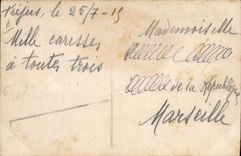 Fréjus, le 25/7-15
Mille caresses
à toutes trois
Mademoiselle
de la République
Marseille